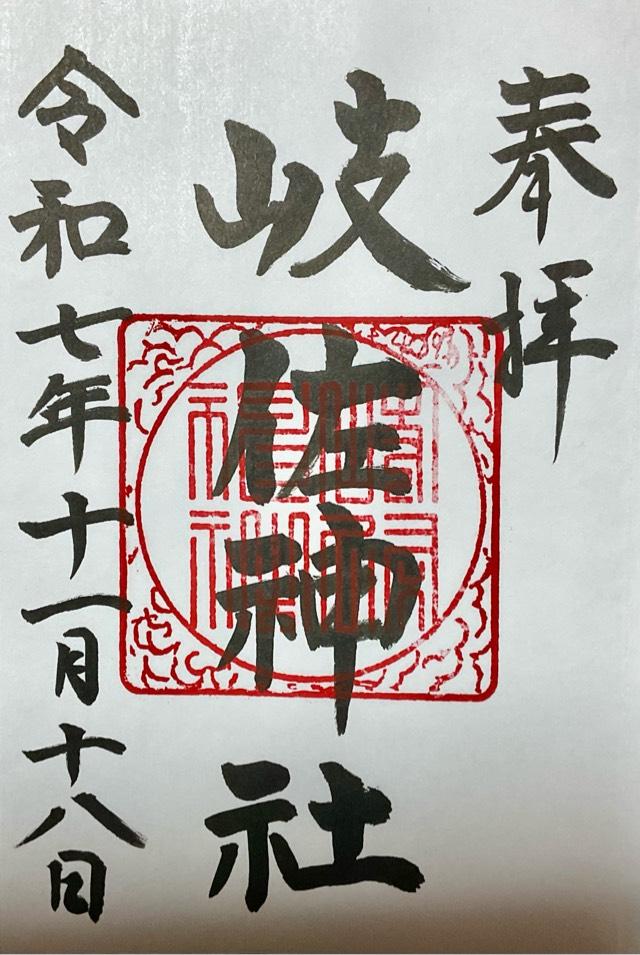 奉拝
岐佐神社
令和七年十一月十八日